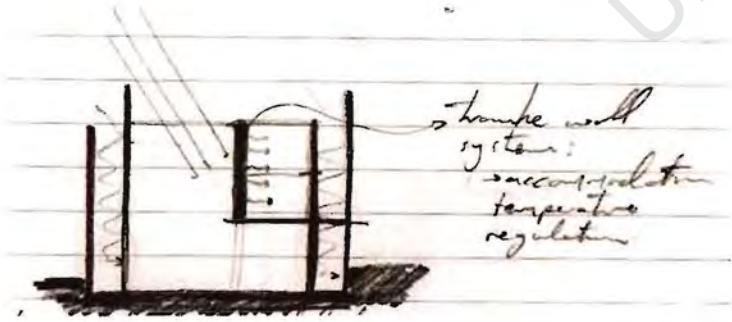 trombe wall
system:
→ accommodation
temperature
regulation